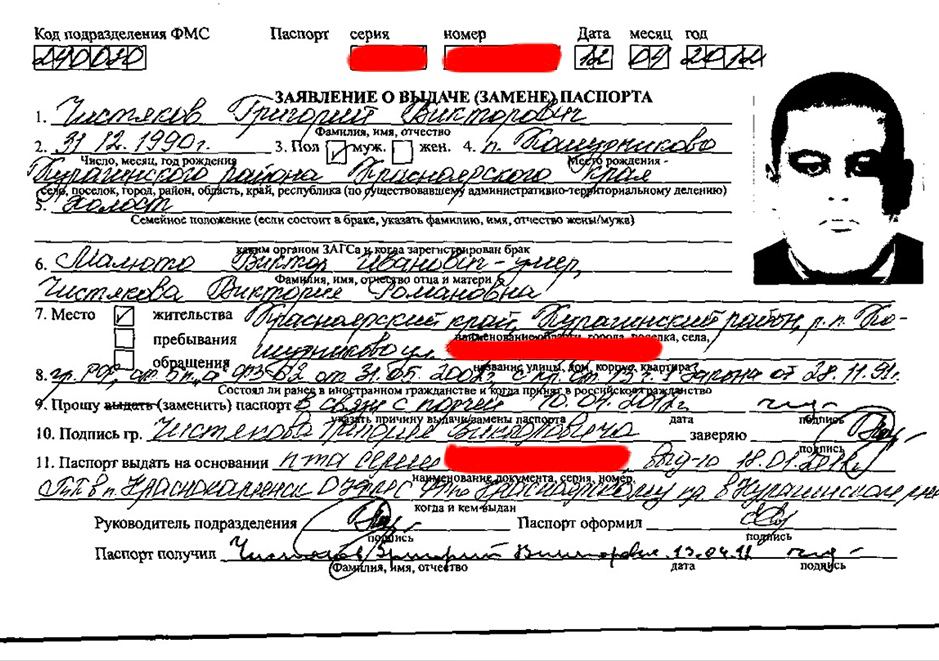 Код подразделения ФМС Паспорт серия номер Дата месяц год
240030 12 04 2012
ЗАЯВЛЕНИЕ О ВЫДАЧЕ (ЗАМЕНЕ) ПАСПОРТА
1. Чистяков Григорий Викторович
Фамилия, имя, отчество
2. 31.12.1990г. 3. Пол муж. жен. 4. п. Кошурниково
Число, месяц, год рождения Место рождения -
Курагинского района Красноярского края
село, поселок, город, район, область, край, республика (по существовавшему административно-территориальному делению)
5. Холост
Семейное положение (если состоит в браке, указать фамилию, имя, отчество жены/мужа)
каким органом ЗАГСа и когда зарегистрирован брак
6. Малюта Виктор Иванович - умер,
Фамилия, имя, отчество отца и матери
Чистякова Виктория Романовна
7. Место жительства Красноярский край, Курагинский район, р.п. Ко-
пребывания наименование области, города, поселка, села,
шурниково ул.
обращения название улицы, дом, корпус, квартира
8. гр. РФ, от 31.05.2002г, закона от 28.11.91г.
Состоял ли ранее в иностранном гражданстве и когда принят в российское гражданство
9. Прошу выдать (заменить) паспорт в связи с порчей 10.04.2012г
указать причину выдачи/замены паспорта дата подпись
10. Подпись гр. Чистякова Григория Викторовича заверяю
подпись
11. Паспорт выдать на основании п-та серии выд-го 18.01.2012г
наименование документа, серия, номер,
ТП в п. Краснокаменск ОУФМС по Красноярскому кр в Курагинском
когда и кем выдан
Руководитель подразделения Паспорт оформил
подпись подпись
Паспорт получил Чистяков Григорий Викторович 13.04.12
Фамилия, имя, отчество дата подпись